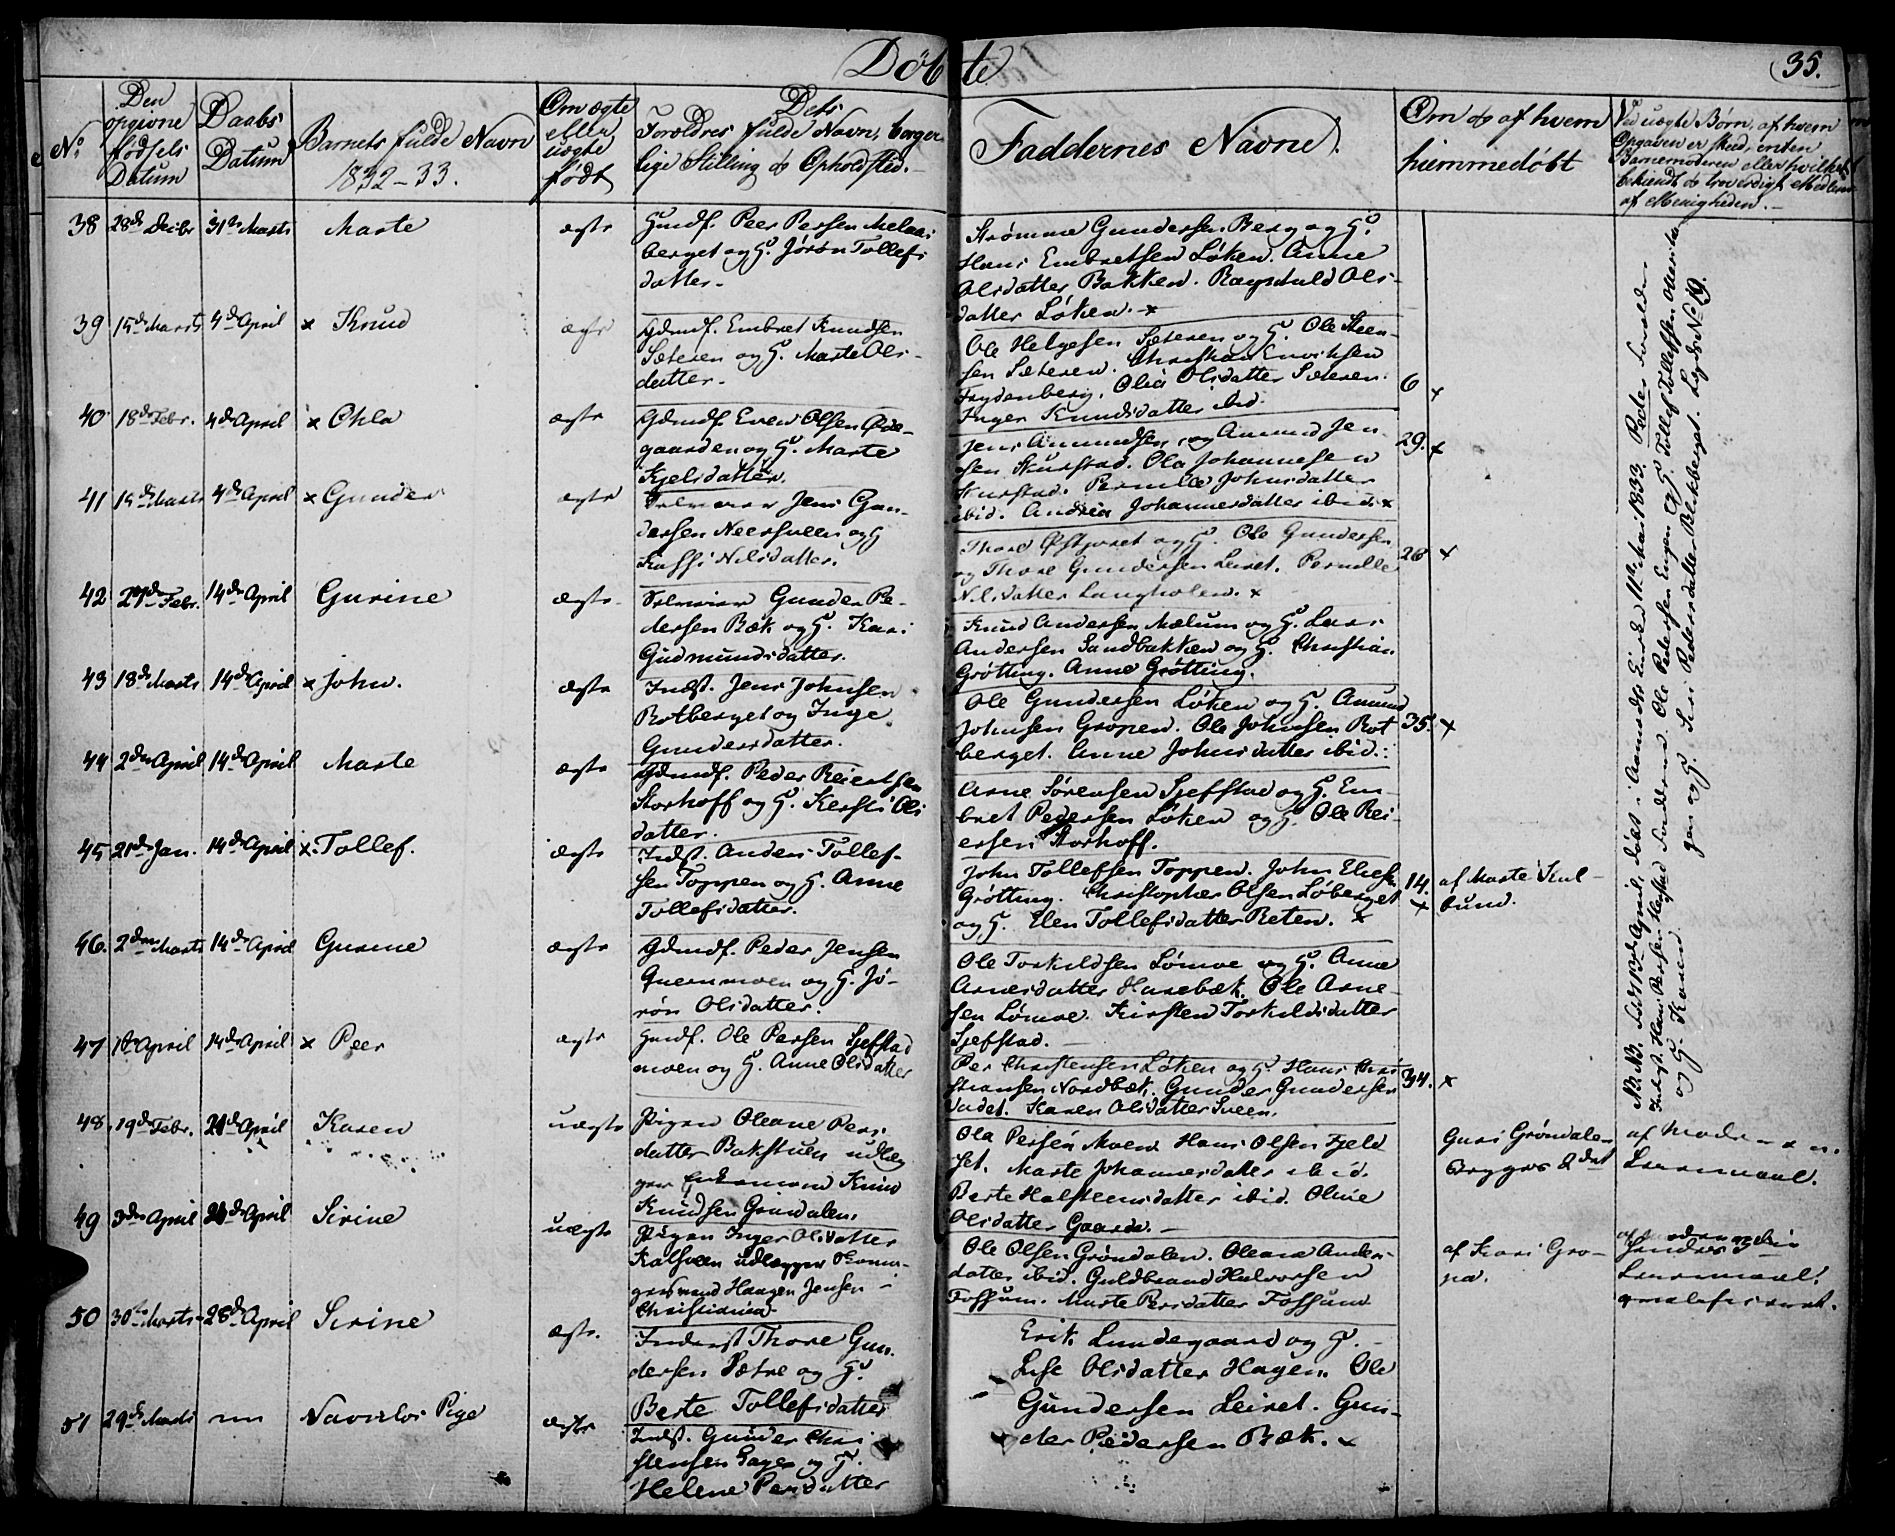 Døbte
35.
No.
Den opgivne fødsels Datum
Daabs Datum
Barnets fulde Navn
1832-33.
Om ægte eller uægte født
Dets Forældres fulde Navn, borgerlige Stilling & Opholdsted.
Faddernes Navne.
Om & af hvem hiemmedøbt
Ved uægte Børn, af hvem Opgaven er skeed, enten Barnemoderen eller hvilket bekiendt & troværdigt Medlem af Menigheden.
38 28de Decbr 31te Marts Marte ægte
Gmdf. Peer Persen Melaas
berget og H. Jørøn Tollefs
datter.
Strømme Gundersen Berg og H.
Hans Embretsen Løken. Anne
Olsdatter Bakken. Ragnhild Ols-
datter Løken. x
39 15de Marts 4de April x Knud ægte
Gdmdf. Embret Knudsen
Sæteren og H. Marte Ols-
datter.
Ole Helgesen Sæteren og H. Ole Steen-
sen Sæteren. Christian Enviksen
Frydenberg. Olia Olsdatter Sæteren.
Inger Knudsdatter ibid.
6 x
40 18de Febr. 4de April x Ohla ægte
Gdmdf. Even Olsen Øde-
gaarden og H. Marte
Kjelsdatter.
Jens Amundsen og Amund Jen-
sen Skurstad. Ola Johannesen
Skurstad. Pernille Johnsdatter
ibid. Andrea Johannesdatter ibid. x
29. x
41 15de Marts 4de April x Gunder ægte
Selveier Jens Gun-
dersen og H
Nilsdatter.
Thore og H. Ole Gundersen
og Thore Gundersen Leiret. Pernille
Nilsdatter Langholen. x
26 x
42 27de Febr. 14de April Gurine ægte
Selveier Gunder Pe-
dersen Bæk og H. Kari
Gudmundsdatter.
Knud Andersen Mælum og H. Lars
Andersen Sandbakken og H. Christian
Grøtting. Anne Grøtting.
43 18de Marts 14de April x John. ægte
Indst. Jens Johnsen
Rotberget og Inge
Gundersdatter.
Ole Gundersen Løken og H. Amund
Johnsen Gropen. Ole Johnsen Rot
berget. Anne Johnsdatter ibid.
35. x
44 2den April 14de April Marte ægte
Gdmdf. Peder Reiersen
Storhoff og H. Kersti Ols
datter.
Arne Sørensen Sjefstad og H. Em-
bret Pedersen Løken og H. Ole Rei-
ersen Storhoff.
45 21de Jan. 14de April x Tollef. ægte
Indst. Anders Tollef-
sen Toppen og H. Anne
Tollefsdatter.
John Tollefsen Toppen. John Eliesen
Grøtting. Christopher Olsen Løberget
og H. Elen Tollefsdatter Reten. x
14. x
af Marte Kul-
bund.
46. 2den Marts 14de April Gurine ægte
Gdmdf. Peder Jensen
Quernmoen og H. Jø-
røn Olsdatter.
Ole Torkildsen Lømoe og H. Anne
Arnesdatter Harebæk. Ole Arne-
sen Lømoe. Kirsten Torkildsdatter
Sjefstad.
47 1ste April 14de April x Peer ægte
Gmdf. Ole Persen Sjefstad
moen og H. Anne Olsdatter
Per Christensen Løken og H. Hans Chri
stiansen Nordbæk. Gunder Gundersen
Vadet. Karen Olsdatter Sveen.
34. x
48. 19de Febr. 21de April Karen uægte
Pigen Oleane Pers
datter Bakstuen udlæg
ger Knud
Knudsen Grindalen.
Ola Persen Moen. Hans Olsen Fjeld
set. Marte Johannesdatter ibid.
Berte Halsteensdatter ibid. Oline
Olsdatter Gaarde.
Guri Grøndalen
af Moderen
Lensmand.
49 3den April 21de April Sirine uægte
Pigen Inger Olsdatter
Kalsveen udlægger
Haagen Jensen
Christiania.
Ole Olsen Grøndalen. Oleana Anders-
datter ibid. Guldbrand Halvorsen
Fossum. Marte Persdatter Fossum
af Kari Gro-
pa.
Lensmand
50 30te Marts 28de April Sirine ægte.
Inderst Thore Gun
dersen Sætre og H.
Berte Tollefsdatter
Erik Lundegaard og H.
Lise Olsdatter Hagen. Ole
Gundersen Leiret. Gun-
der Pedersen Bæk. x
51 29de Marts Navnløs Pige ægte
Indst. Gunder Chri
stensen Hagen og H.
Helene Persdatter
N.B. født 13de April, døbt i Aamodts 11te Mai 1833. Peder
Indst. Hans Persen Hafstad Fadderne. Ole Pedersen Engen og H. Tollef Tollefsen
og H. Karen. gen og H. Siri Pedersdatter Blekberget. No 19.